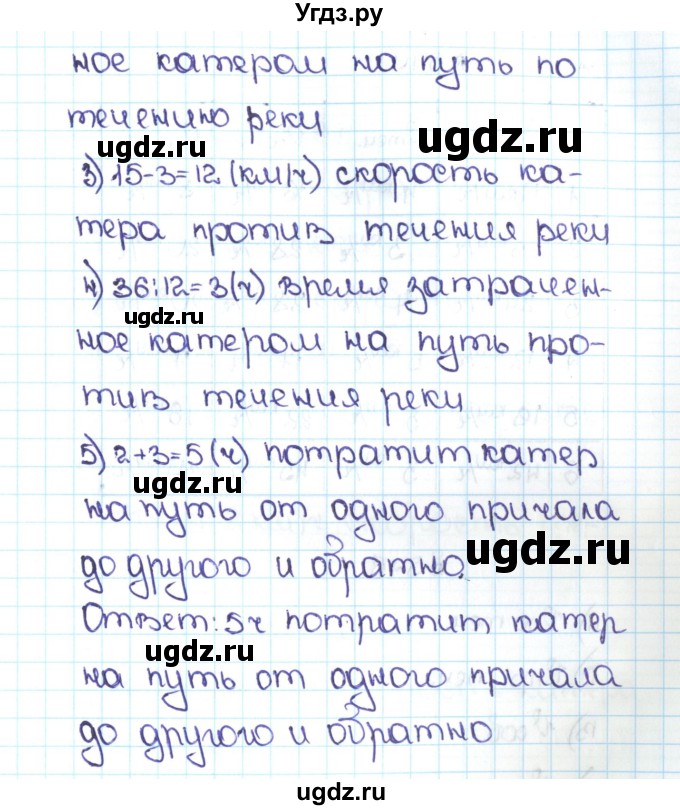 Угдз.ру
ное катером на путь по
течению реки
ugdz.ru
ugdz.ru
3) 15-3=12 (км/ч) скорость ка-
тера против течения реки
4) 36:12=3(ч) время затрачен-
ugdz.ru
ное катером на путь про-
тив течения реки
5) 2+3=5 (ч) потратит катер
ugdz.ru
на путь от одного причала
ugdz.ru
до другого и обратно.
Ответ: 5ч потратит катер
ugdz.ru
на путь от одного причала
до другого и обратно
ugdz.ru
ugdz.ru